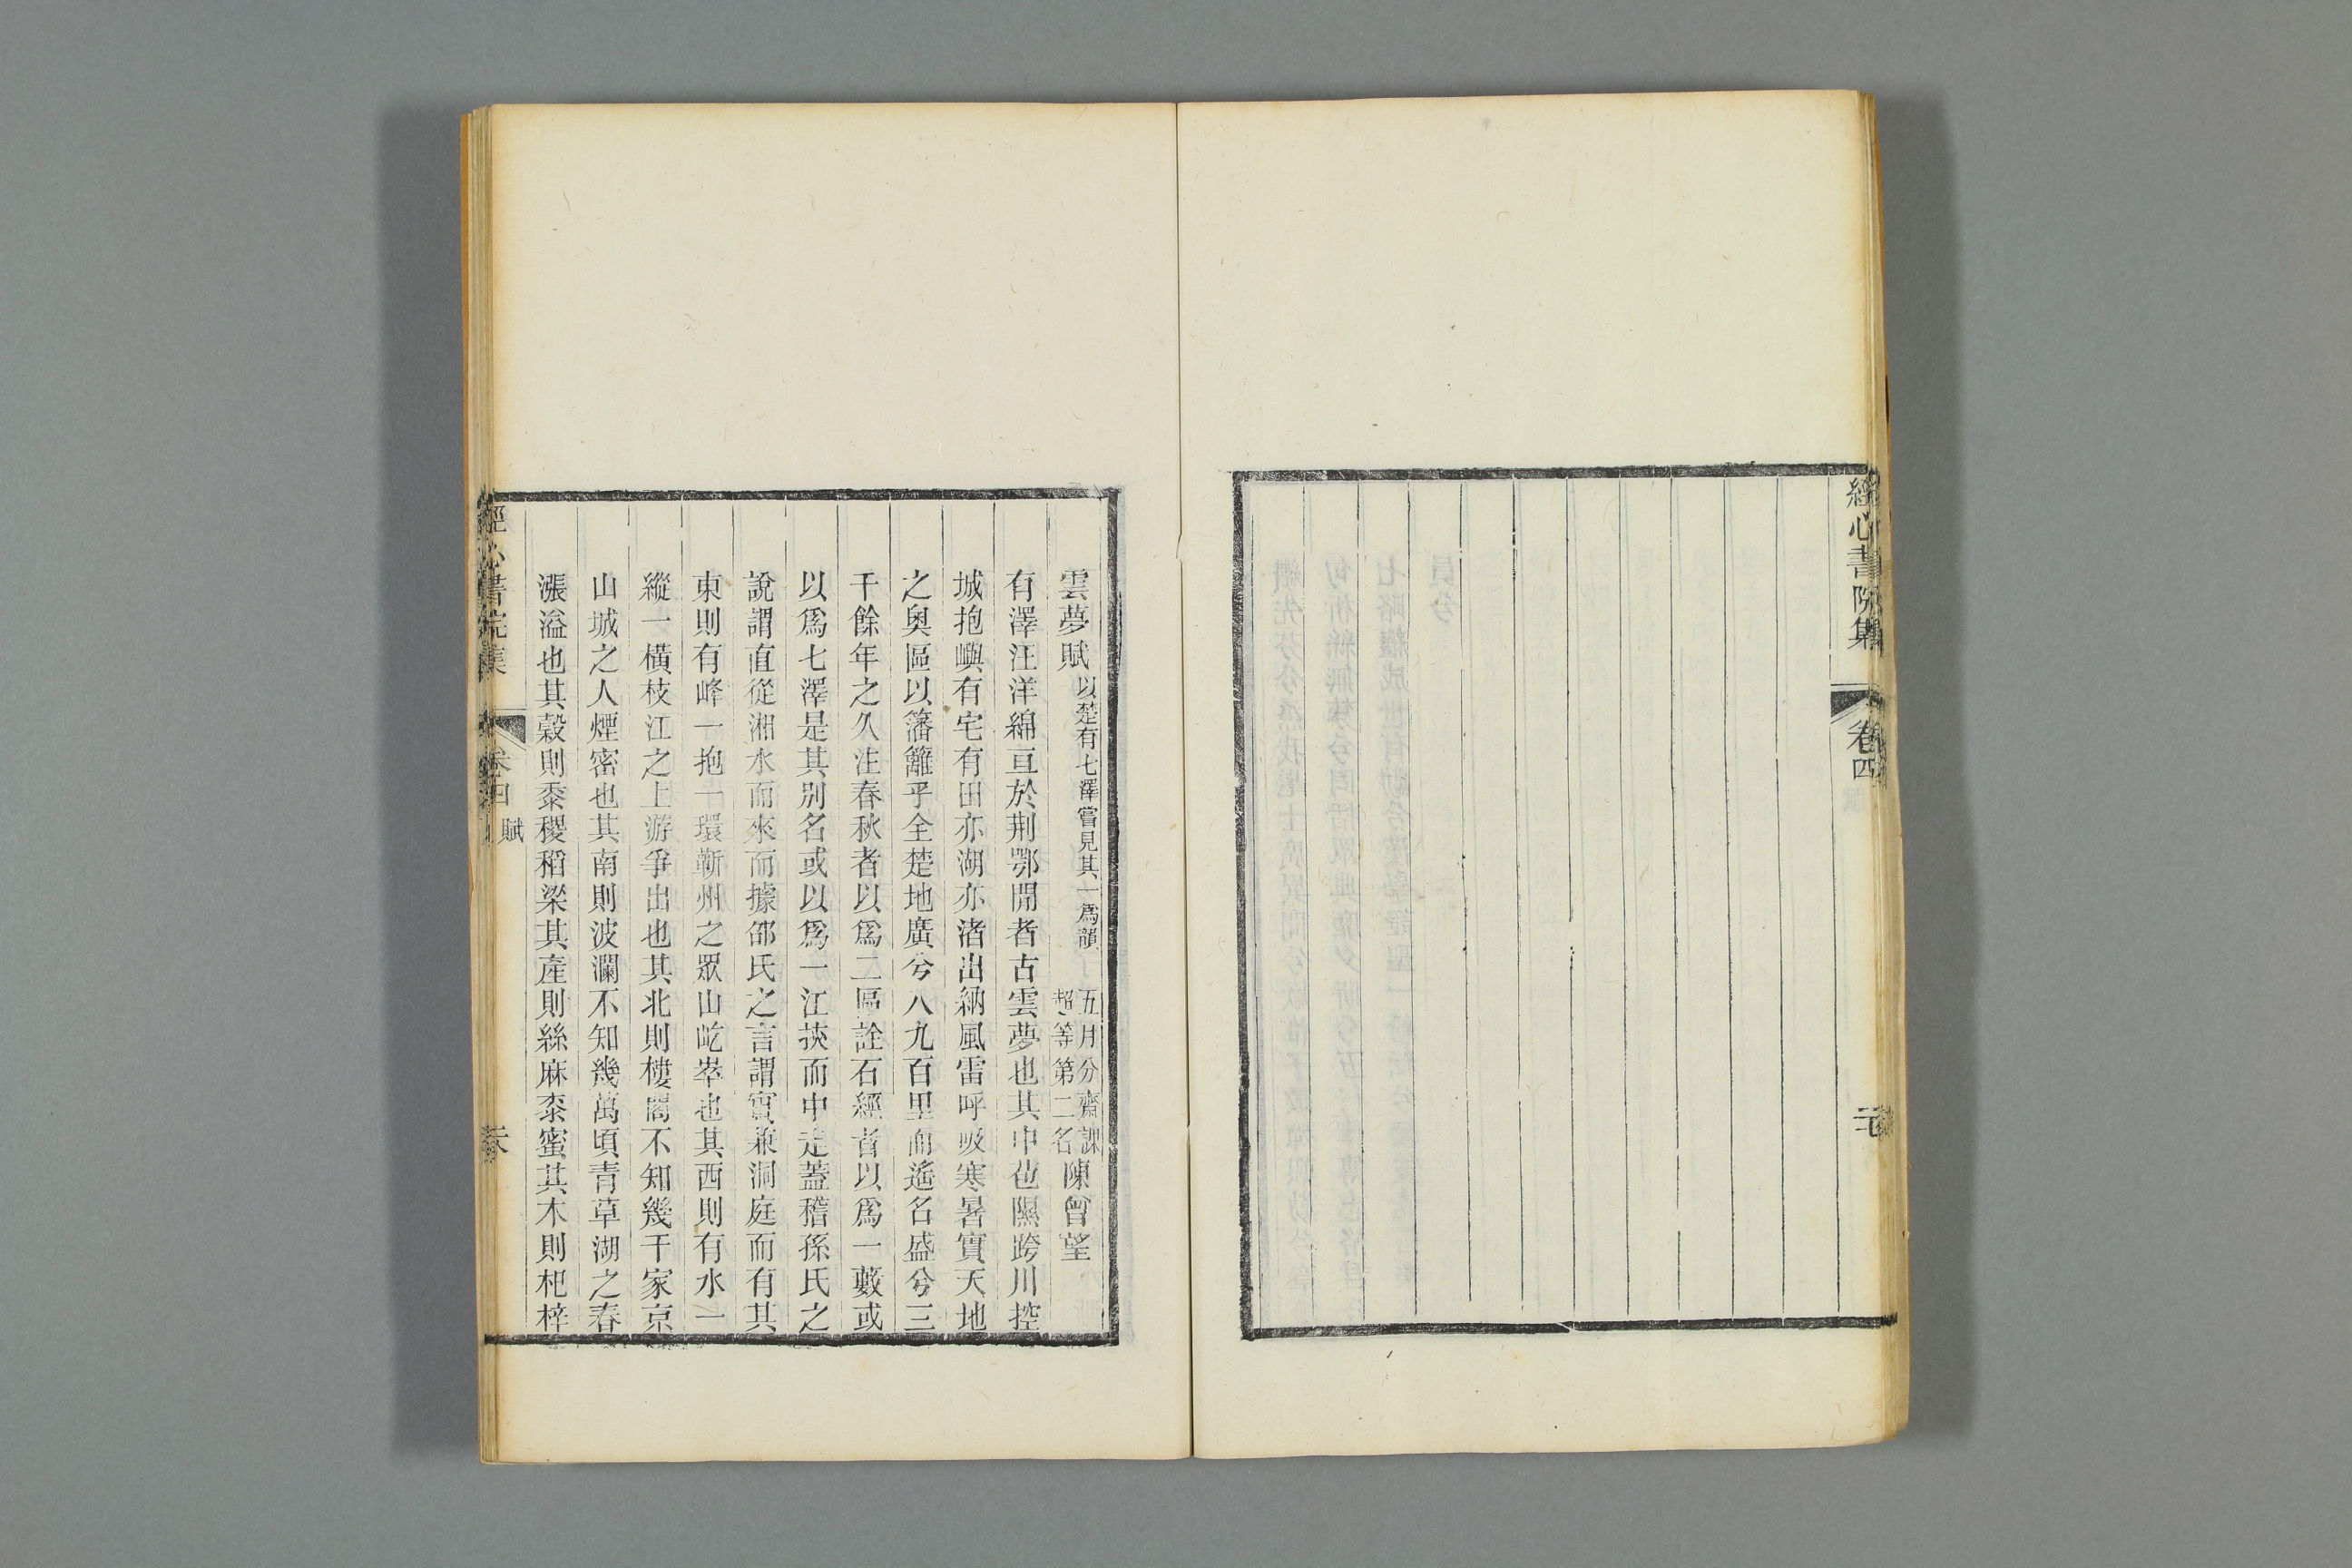 經心書院集 卷四
雲夢賦以楚有七澤嘗見其一爲韻 五月分齋課超等第二名 陳曾望
有澤汪洋綿亘於荆鄂間者古雲夢也其中苞隰跨川控
城抱嶼有宅有田亦湖亦渚出納風雷呼吸寒暑實天地
之奥區以籓籬乎全楚地廣兮八九百里而遙名盛兮三
千餘年之久注春秋者以爲二區詮石經者以爲一藪或
以爲七澤是其别名或以爲一江挾而中走蓋稽孫氏之
說謂直從湘水而來而據邵氏之言謂實兼洞庭而有其
東則有峰一抱一環蘄州之眾山屹崒也其西則有水一
縱一橫枝江之上游爭出也其北則樓閣不知幾千家京
山城之人煙密也其南則波瀾不知幾萬頃青草湖之春
漲溢也其穀則黍稷稻粱其產則絲麻桼蜜其木則杞梓
經心書院集 卷四 賦